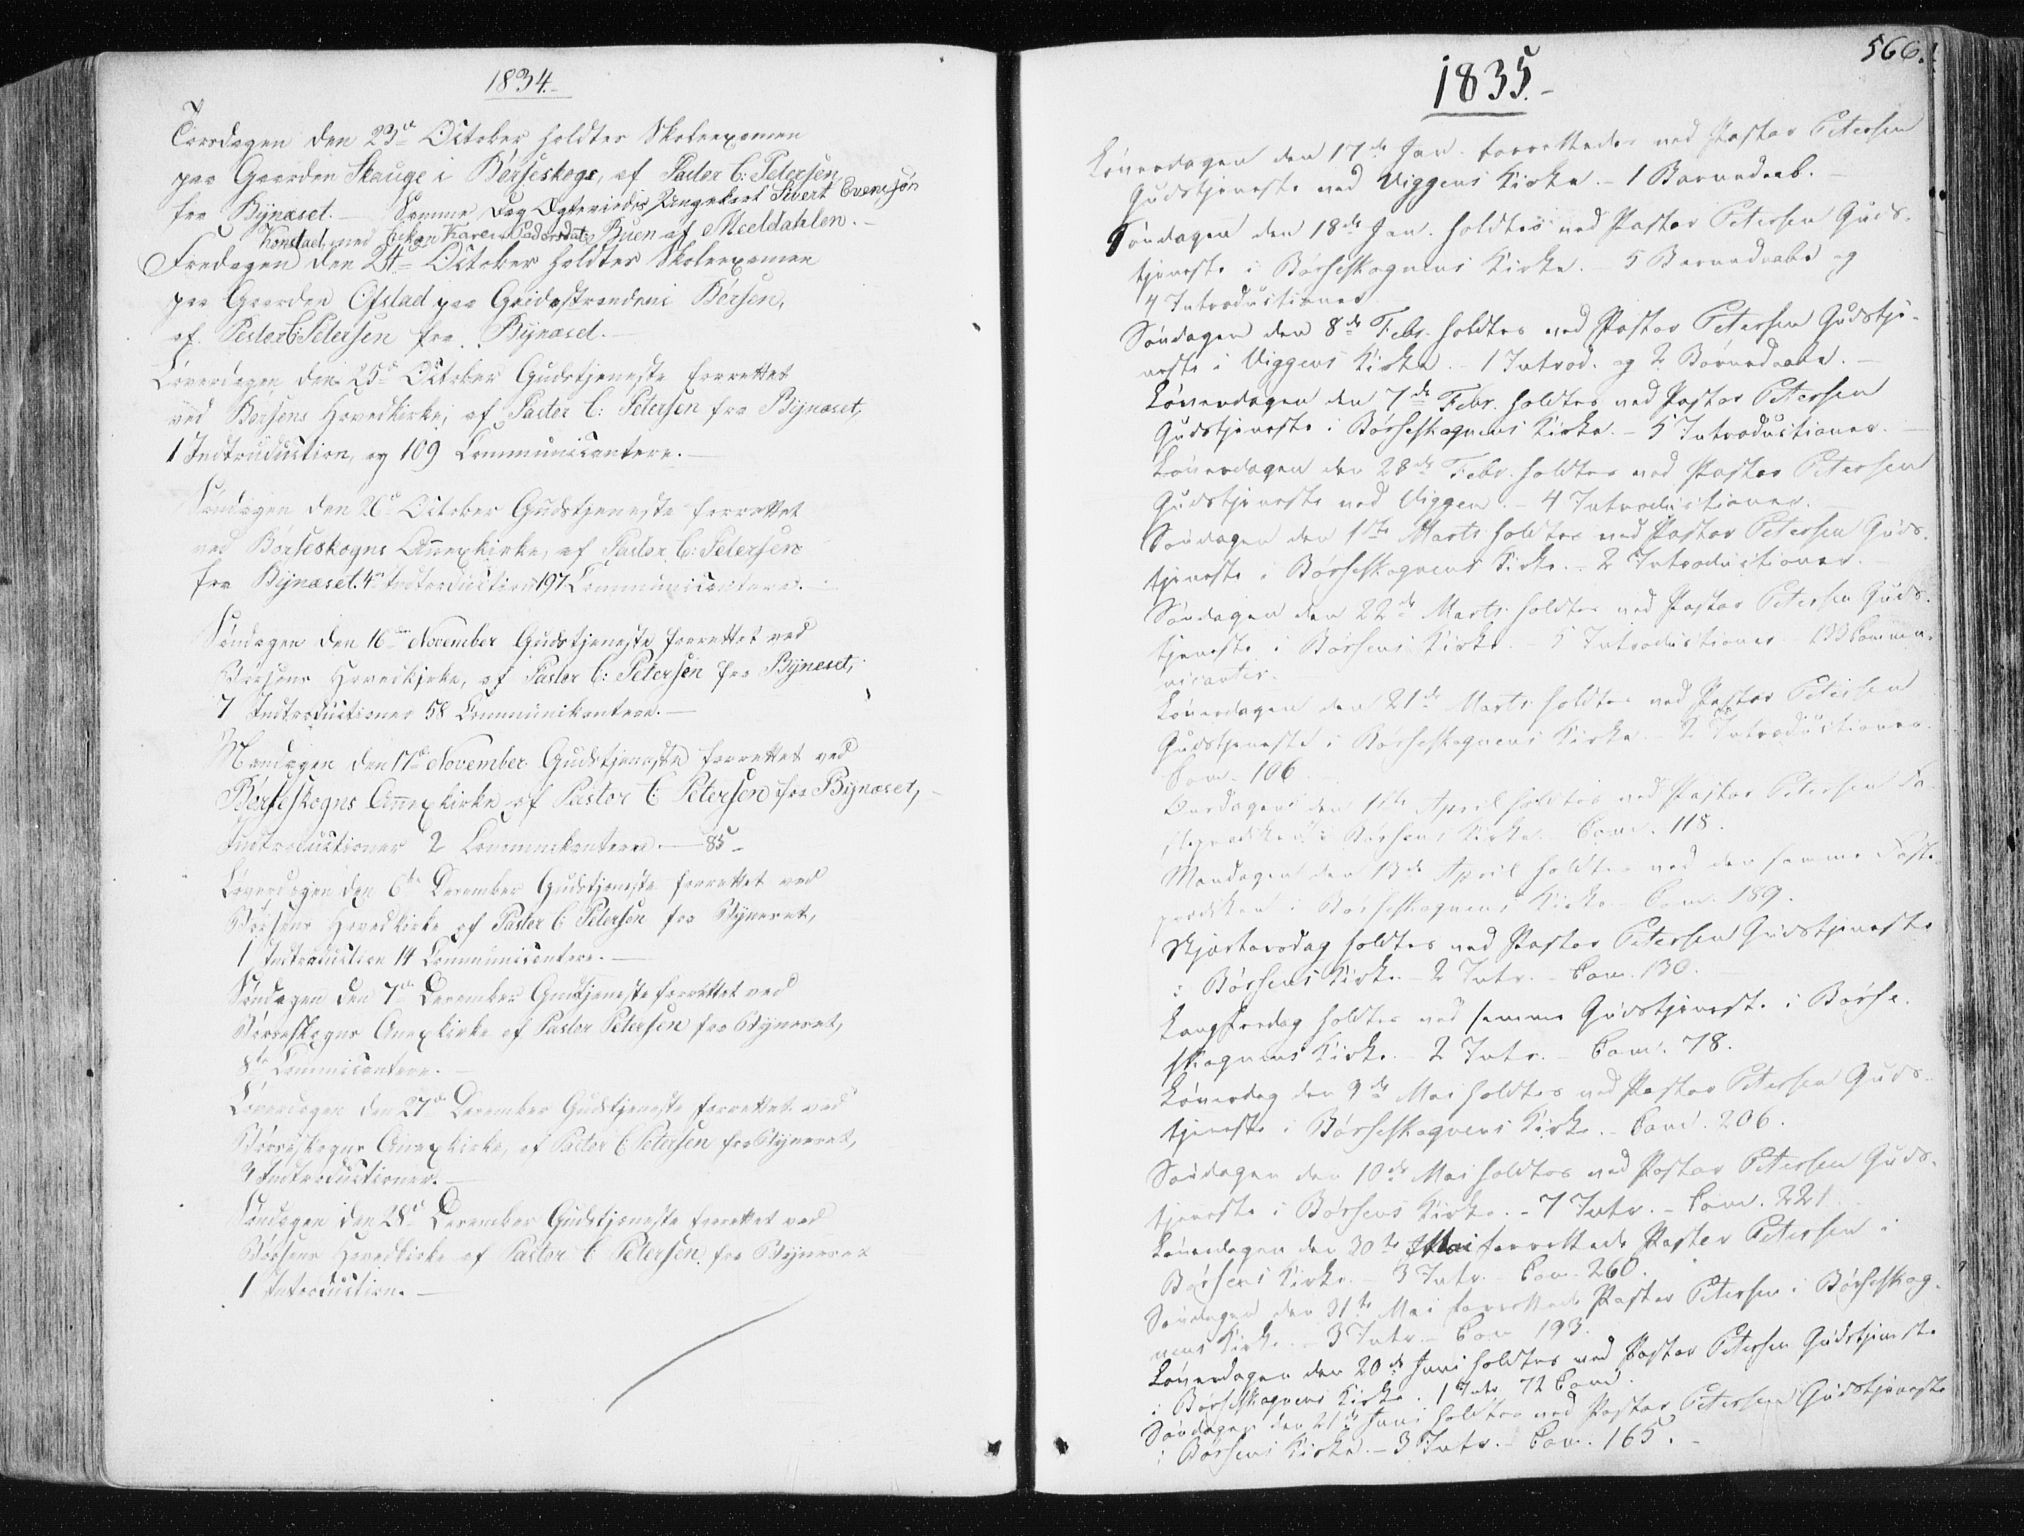 1834.-
Torsdagen den 23de October holdtes Skoleexamen
paa Gaarden Skauge i Børseskogn, af Pastor C: Petersen
fra Bynæset. - Samme Dag Ægteviedes Ungekarl Sivert Evensøn
Konstad med Enkon Karen Buen af Meeldahlen. -
Fredagen den 24de October holdtes Skoleexamen
paa Gaarden Ofstad paa Geidastranden i Børsen,
af Pastor C: Petersen fra Bynæset. -
Løverdagen den 25de October Gudstjeneste forrettet
ved Børsens Hovedkirke, af Pastor C: Petersen fra Bynæset,
1 Indtroduction, og 109 Communicantere. -
Søndagen den 26de October Gudstjeneste forrettet
ved Børseskogns Annexkirke, af Pastor C: Petersen
fra Bynæset. 4 Indtroduction 197 Communicantere. -
Søndagen den 16de November Gudstjeneste forrettet ved
Børsens Hovedkirke, af Pastor C: Petersen fra Bynæset,
7 Indtroductioner 58 Communikantere. -
Mandagen den 17de November Gudstjeneste forrettet ved
Børseskogns Annexkirke af Pastor C: Petersen fra Bynæset,
Indtroductioner 2 Communikantere - 85 -
Løverdagen den 6te December Gudstjeneste forrettet ved
Børsens Hovedkirke af Pastor C: Petersen fra Bynæset,
1 Indtroduction 14 Communicantere. -
Søndagen den 7de December Gudstjeneste forrettet ved
Børseskogns Anexkirke af Pastor Petersen fra Bynæset,
8te Communicantere. -
Løverdagen den 27de December Gudstjeneste forrettet ved
Børseskogns Anexkirke, af Pastor C Petersen fra Bynæset,
Indtroductioner. -
Søndagen den 28de December Gudstjeneste forrettet ved
Børsens Hovedkirke af Pastor C Petersen fra Bynæset
1 Introduction. -
566.
1835.-
Løverdagen den 17de Jan. forrettedes ved Pastor Petersen
Gudstjeneste ved Viggens Kirke. - 1 Barnedaab. -
Søndagen den 18de Jan. holdtes ved Pastor Petersen Guds-
tjeneste i Børseskognens Kirke. - 5 Barnedaabe og
4 Introductioner
Søndagen den 8de Febr. holdtes ved Pastor Petersen Gudstje-
neste i Viggens Kirke. - 1 Introd. og 2 Børnedaabe. -
Løverdagen den 7de Febr. holdtes ved Pastor Petersen
Gudstjeneste i Børseskognens Kirke. - 5 Introductioner. -
Løverdagen den 28de Febr. holdtes ved Pastor Petersen
Gudstjeneste ved Viggen. - 4 Introductioner. -
Søndagen den 1ste Marts holdtes ved Pastor Petersen Guds-
tjeneste i Børseskognens Kirke. - 2 Introductioner. -
Søndagen den 22de Marts holdtes ved Pastor Petersen Guds-
tjeneste i Børsens Kirke. - 5 Introductioner - 133 Commu-
nicanter.
Løverdagen den 21de Marts holdtes ved Pastor Petersen
Gudstjeneste i Børseskognens Kirke. - 2 Introductioner.
Com. 106
Onsdagen den April holdtes ved Pastor Petersen Fa-
steprædiken i Børsens Kirke. - Com. 118.
Mandagen den 13de April holdtes ved den samme Faste-
prædiken i Børseskognens Kirke. - Com. 189.
Skjærtorsdag holdtes ved Pastor Petersen Gudstjeneste
i Børsens Kirke. - 2 Intr. - Com. 130.
Langfredag holdtes ved samme Gudstjeneste i Børse-
skognens Kirke. - 2 Intr. - Com. 78.
Løverdag den 9de Mai holdtes ved Pastor Petersen Guds-
tjeneste i Børseskognens Kirke. - Com. 206.
Søndagen den 10de Mai holdtes ved Pastor Petersen Guds-
tjeneste i Børsens Kirke. - 7 Intr. - Com. 221.
Løverdagen den 30te Mai forrettede Pastor Petersen i
Børsens Kirke. - 3 Intr. - Com. 260.
Søndagen den 31te Mai forrettede Pastor Petersen i Børseskog-
nens Kirke. - 3 Intr. - Com 193.
Løverdagen den 20de Juni holdtes ved Pastor Petersen Gudstjeneste
i Børseskognens Kirke. 1 Intr. 72 Com.
Søndagen den 21de Juni holdtes ved Pastor Petersen Gudstjeneste
i Børsens Kirke. - 3 Intr. - Com. 165. -